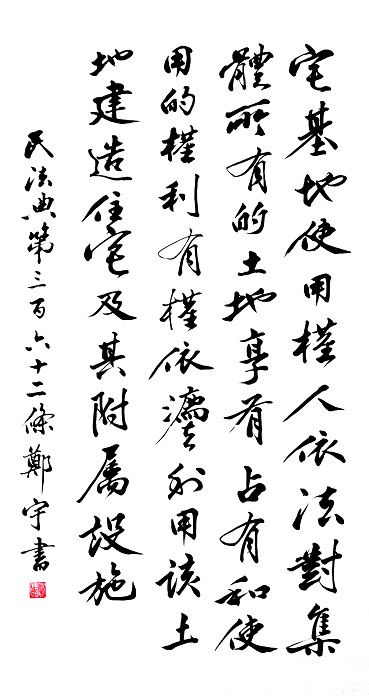 宅基地使用權人依法對集
體所有的土地享有占有和使
用的權利有權依灋利用該土
地建造住宅及其附属設施
民法典第三百六十二條鄭宇書